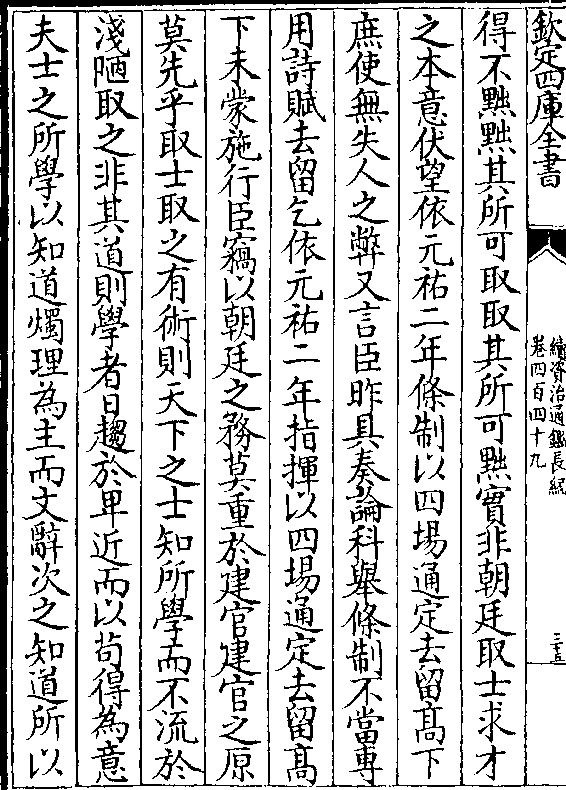 欽定四庫全書
續資治通鑑長編
卷四百四十九
三十五
得不黜黜其所可取取其所可黜實非朝廷取士求才
之本意伏望依元祐二年條制以四場通定去留髙下
庶使無失人之弊又言臣昨具奏論科舉條制不當專
用詩賦去留乞依元祐二年指揮以四場通定去留髙
下未蒙施行臣竊以朝廷之務莫重於建官建官之原
莫先乎取士取之有術則天下之士知所學而不流於
淺陋取之非其道則學者日趨於卑近而以苟得為意
夫士之所學以知道燭理為主而文辭次之知道所以